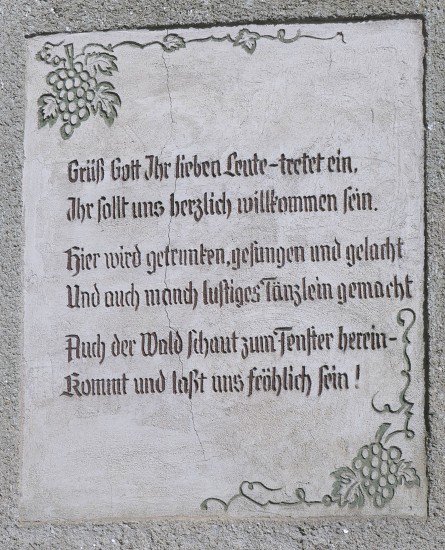 Grüß Gott Ihr lieben Leute-tretet ein,
Ihr sollt uns herzlich willkommen sein.
Hier wird getrunken, gesungen und gelacht
Und auch manch lustiges Tänzlein gemacht
Auch der Wald schaut zum Fenster herein-
Kommt und laßt uns fröhlich sein!